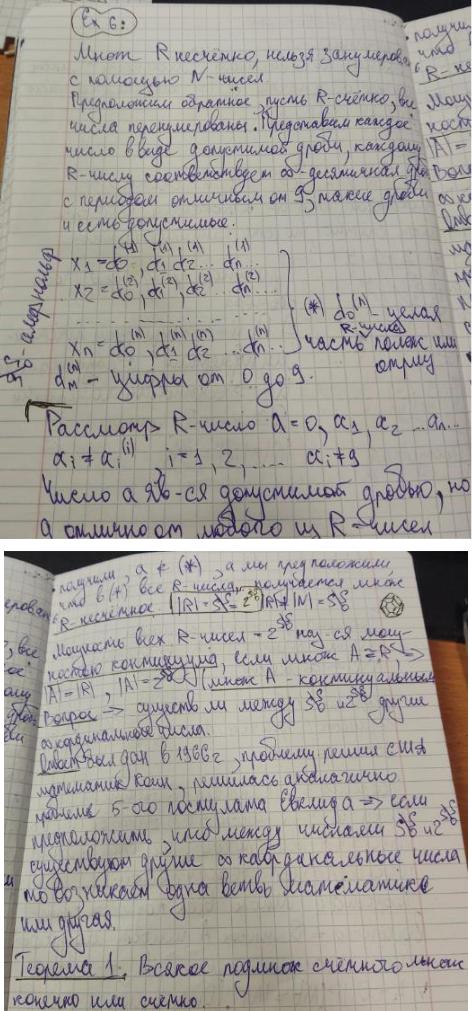 Ex 6:
Множ R несчётно, нельзя занумеров
с помощью N-чисел
Предположим обратное, пусть R-счётно, все
числа перенумерованы. Представим каждое
число в виде допустимой дроби, каждому
R-числу соответствует ∞-десятичная дробь
с периодом отличным от 9, такие дроби
и есть допустимые.
X₁ = α₀⁽¹⁾, α₁⁽¹⁾ α₂⁽¹⁾ ... αₙ⁽¹⁾ ...
X₂ = α₀⁽²⁾, α₁⁽²⁾ α₂⁽²⁾ ... αₙ⁽²⁾ ...
..................
Xₙ = α₀⁽ⁿ⁾, α₁⁽ⁿ⁾ α₂⁽ⁿ⁾ ... αₙ⁽ⁿ⁾ ...
(*) α₀⁽ⁿ⁾ - целая
часть R-числа полож или
отриц
αₘ⁽ⁿ⁾ - цифры от 0 до 9.
ℵ₀ - алефнольф
Рассмотр R-число a = 0, α₁, α₂ ... αₙ...
αᵢ ≠ αᵢ⁽ⁱ⁾, i = 1, 2, .... αᵢ ≠ 9
Число a яв-ся допустимой дробью, но
a отлично от любого из R-чисел
получили, a ∉ (*), а мы предположили
что в (*) все R-числа, получается множ
R-несчётное |R| = ℵ = 2^ℵ₀ |R| ≠ |N| = ℵ₀
Мощность всех R-чисел = 2^ℵ₀ наз-ся мощ-
ностью континуума, если множ A ≅ R, ⇒
|A| = |R|, |A| = 2^ℵ₀ (множ A - континуальным
Вопрос ⇒ существ ли между ℵ₀ и 2^ℵ₀ другие
∞ кардинальные числа.
Ответ был дан в 1966г, проблему решил сша
математик Коэн, решилась аналогично
проблеме 5-ого постулата Евклида ⇒ если
предположить, что между числами ℵ₀ и 2^ℵ₀
существуют другие ∞ кардинальные числа
то возникает одна ветвь математике
или другая.
Теорема 1. Всякое подмнож счётного множ
конечно или счётно.